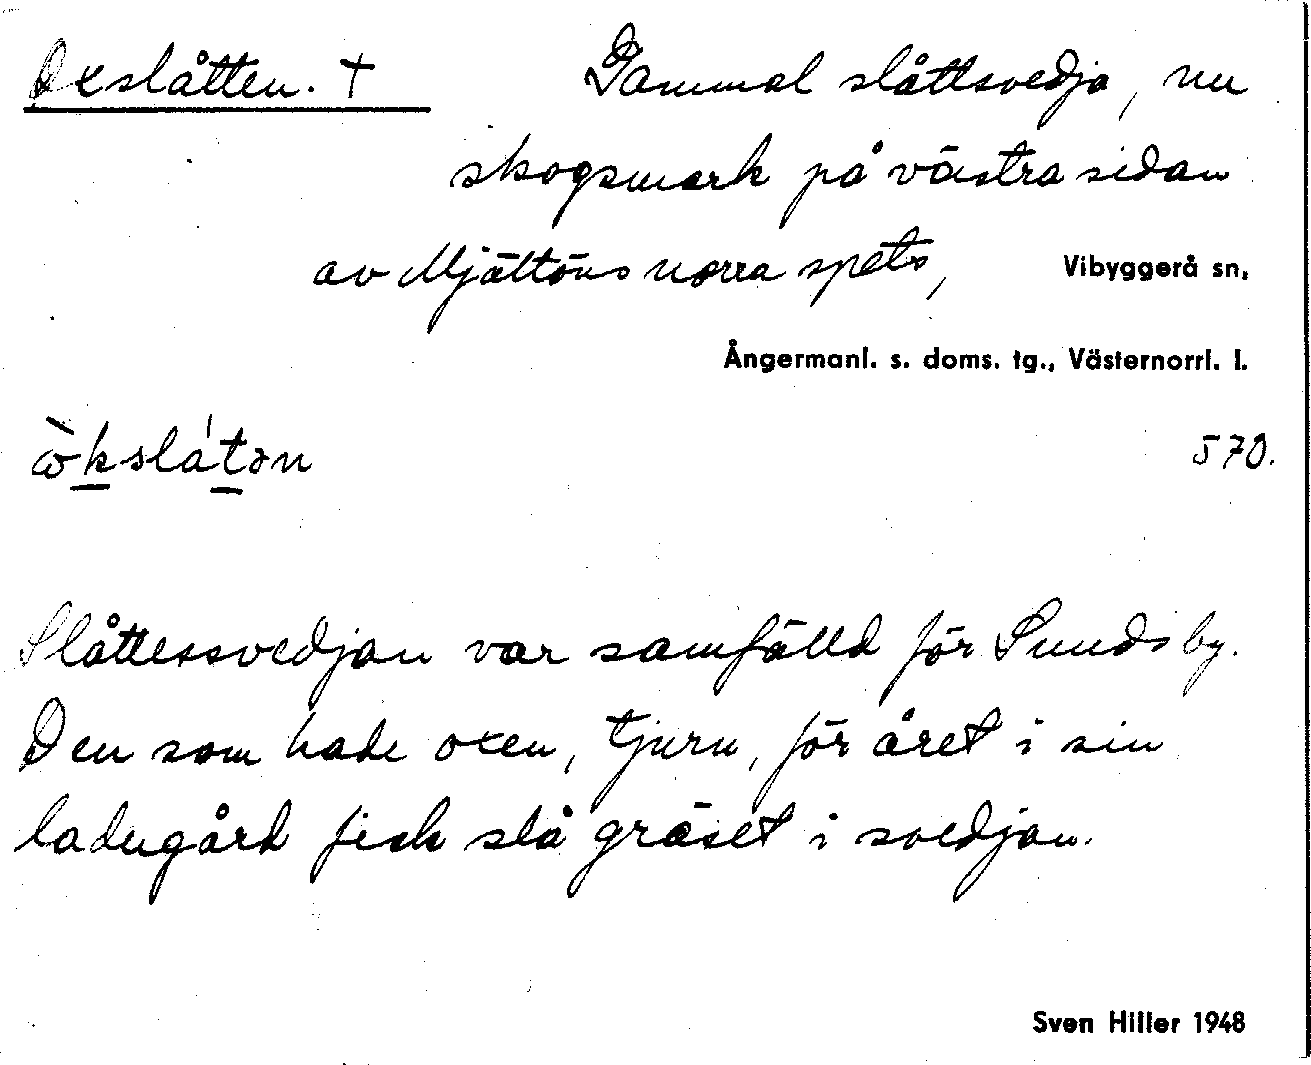 Oxslåtten. † Gammal slåttsvedja, nu
skogsmark på västra sidan
av Mjältöns norra spets, Vibyggerå sn,
Ångermanl. s. doms. tg., Västernorrl. l.
570.
Slåttessvedjan var samfälld för Sundsby.
Den som hade oxen, tjuren, för året i sin
ladugård fick slå gräset i svedjan.
Sven Hiller 1948